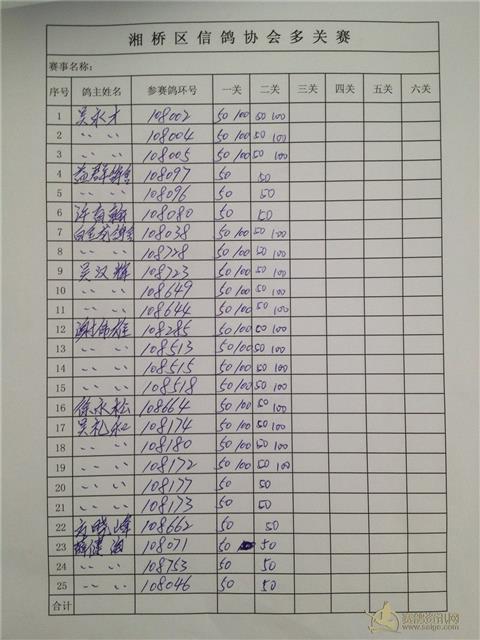 湘桥区信鸽协会多关赛
赛事名称:
序号 鸽主姓名 参赛鸽环号 一关 二关 三关 四关 五关 六关
1 吴永才 108002 50 100 50 100
2 〃 〃 108004 50 100 50 100
3 〃 〃 108005 50 100 50 100
4 益群鸽舍 108097 50 50
5 〃 〃 108096 50 50
6 108080 50 50
7 108038 50 100 50 100
8 〃 〃 108728 50 100 50 100
9 吴汉辉 108723 50 100 50 100
10 〃 〃 108649 50 100 50 100
11 〃 〃 108644 50 100 50 100
12 谢伟雄 108285 50 100 50 100
13 〃 〃 108513 50 100 50 100
14 〃 〃 108515 50 100 50 100
15 〃 〃 108518 50 100 50 100
16 徐永松 108664 50 100 50 100
17 吴礼和 108174 50 100 50 100
18 〃 〃 108180 50 100 50 100
19 〃 〃 108172 50 100 50 100
20 〃 〃 108177 50 50
21 〃 〃 108173 50 50
22 108662 50 50
23 108071 50 50
24 〃 〃 108753 50 50
25 〃 〃 108046 50 50
合计
赛鸽资讯网
www.saige.com